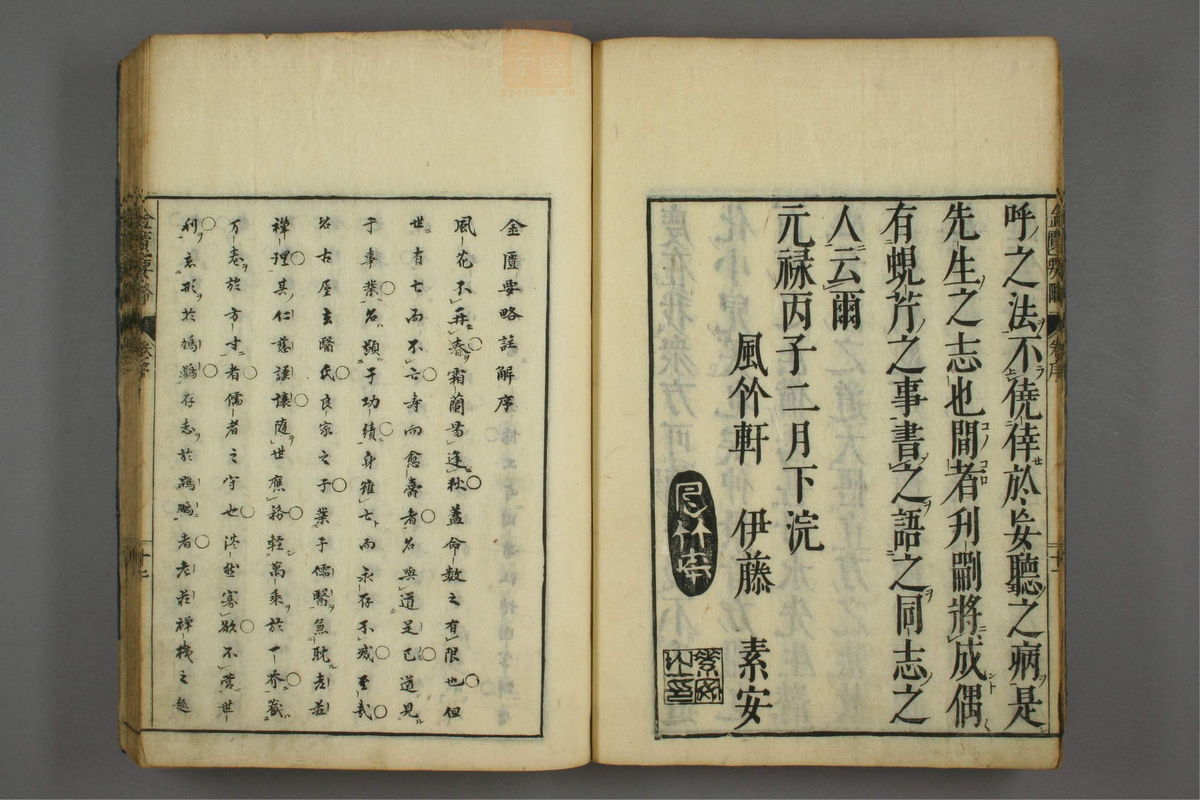 呼之法不僥倖於妄聽之病是
先生之志也間者刋劂將成偶
有蜆芹之事書之語之同志之
人云爾
元禄丙子二月下浣
風竹軒 伊藤 素安
金匱要略註解序
風花不再春霜蘭豈逢秋蓋命數之有限也但
世有亡而不亡壽而愈壽者名與道是已道見
于事業名顯于功績身雖亡而永存不滅至哉
名古屋玄醫氏良家之子業于儒醫魚耽老莊
禪理其仁慈謙懷隨世應務輕萬乘於一芥藏
万卷於方寸者儒者之守也淡然寡欲不營世
利忘形於鳩鷃存志於鵾鵬者老莊禪機之趣